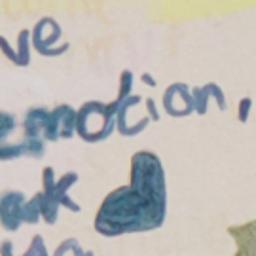 ve
emotion,
ank